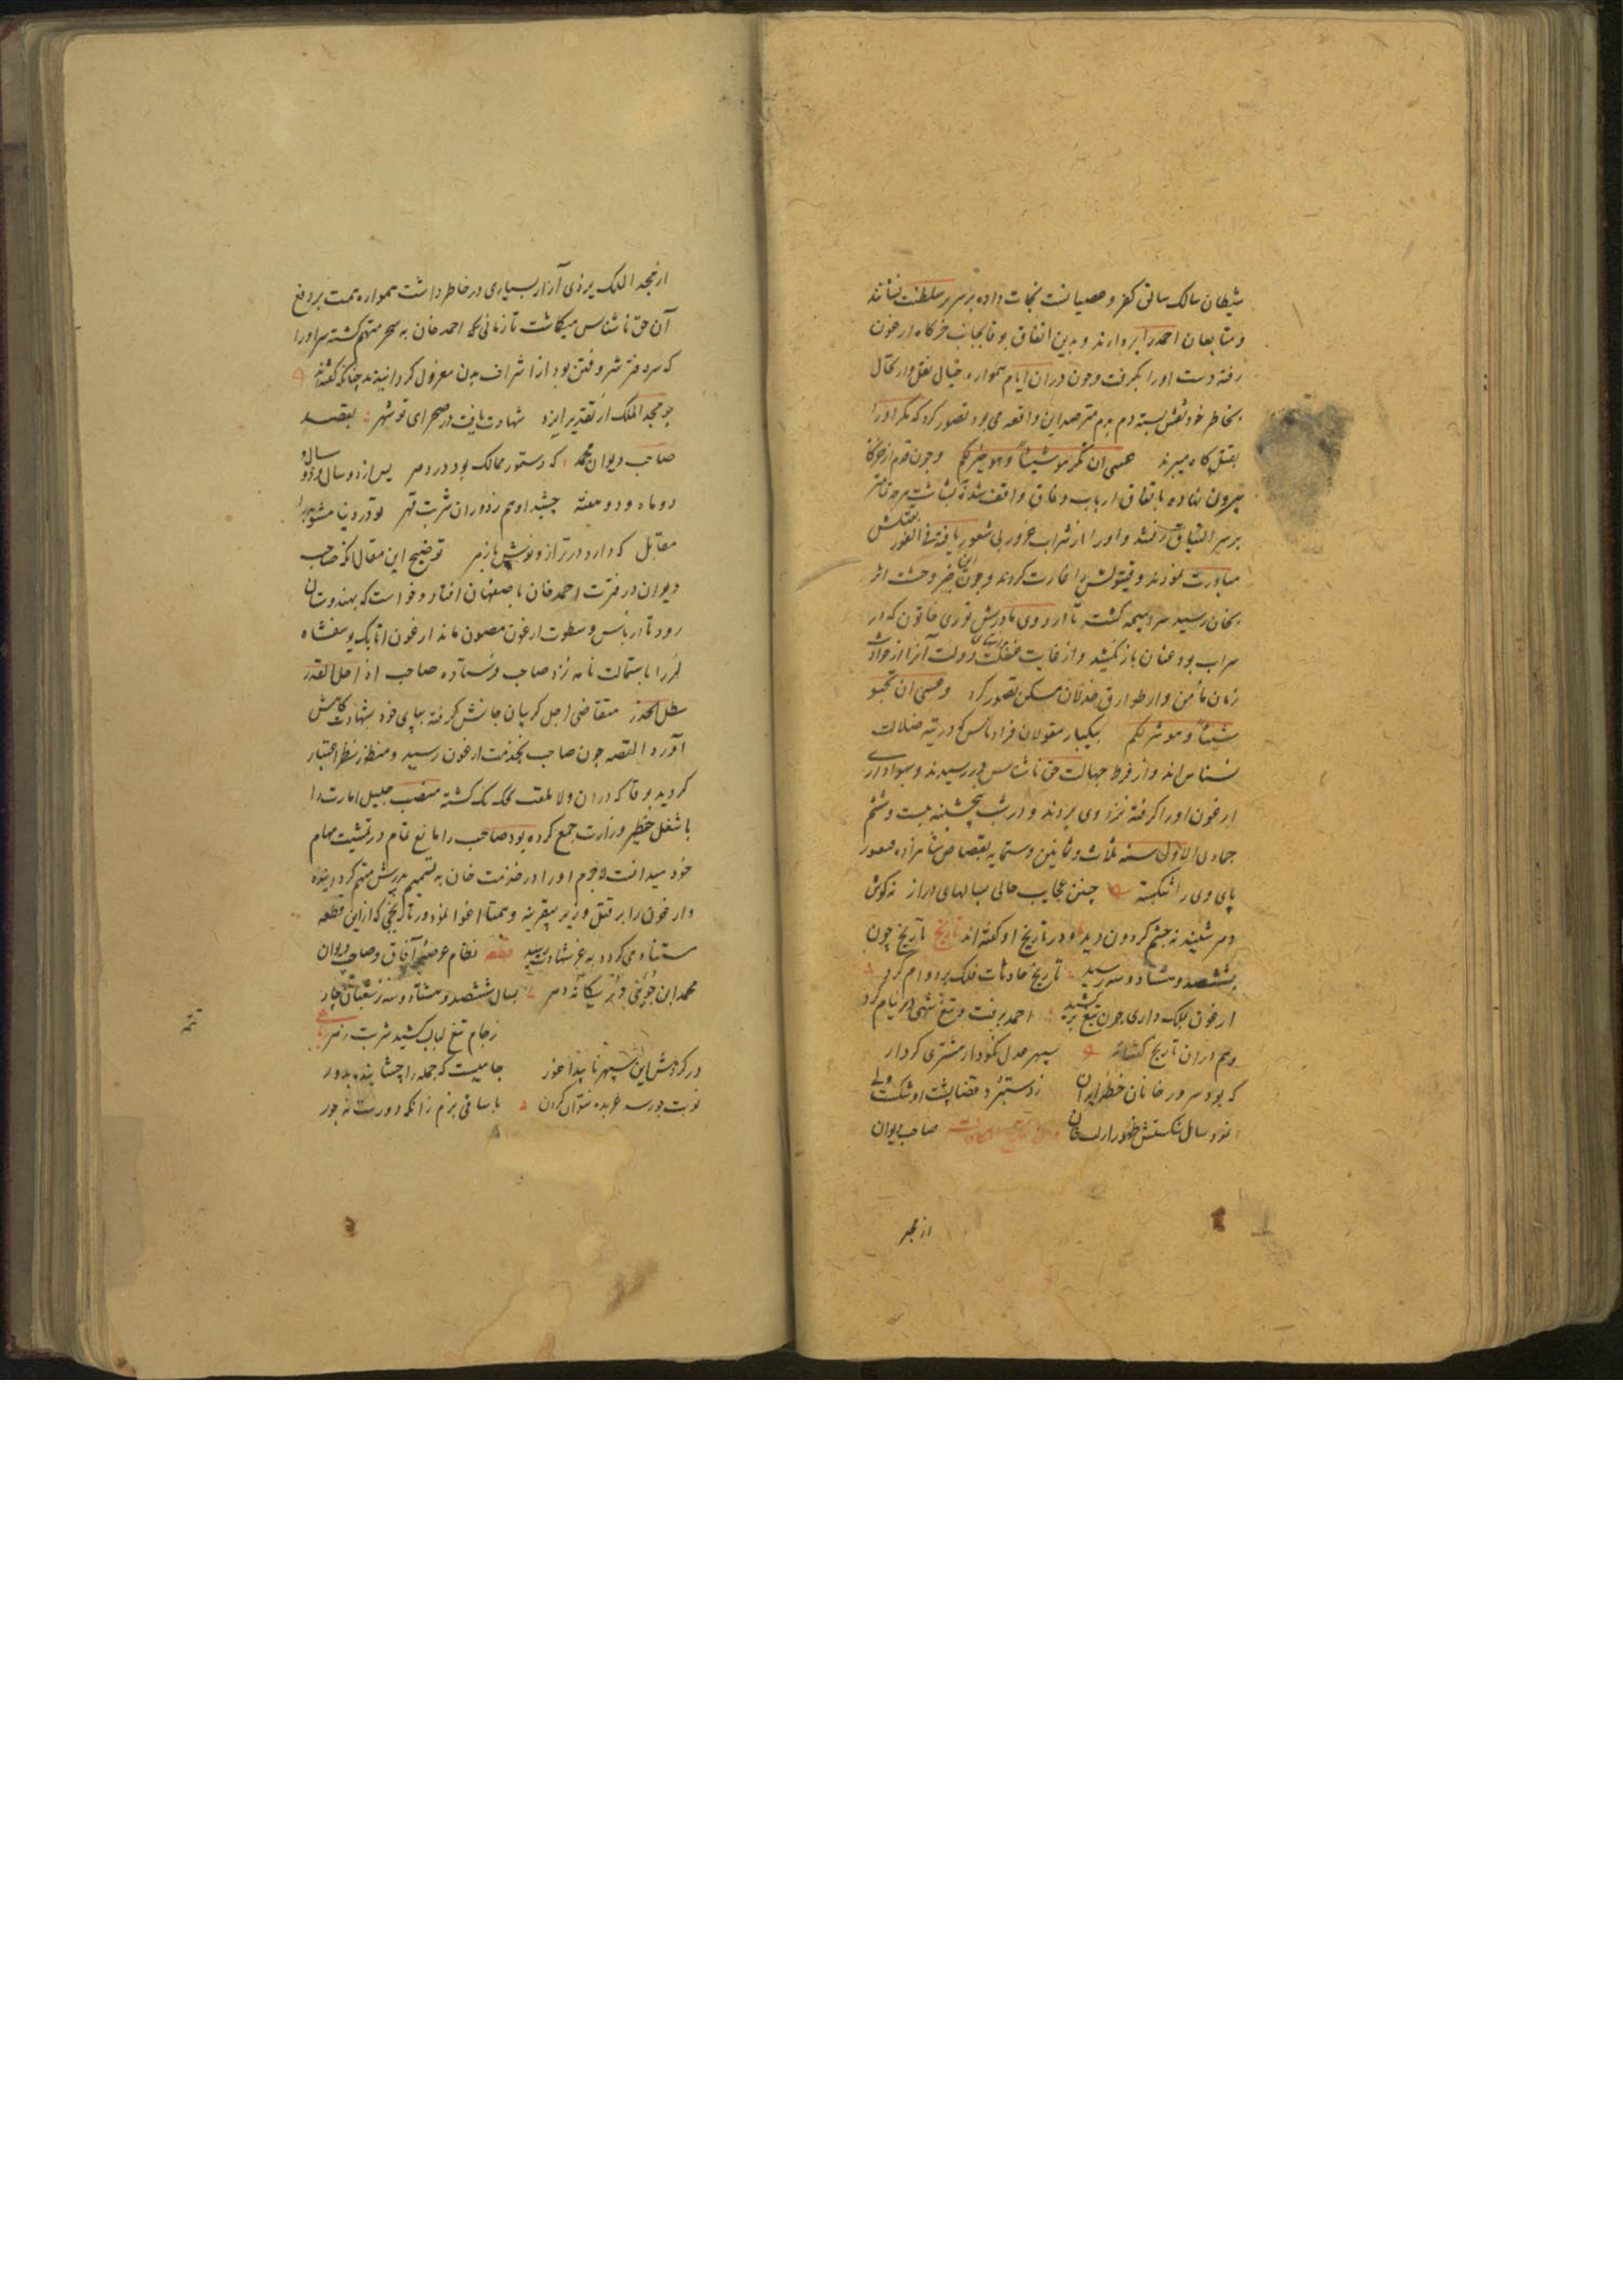 شیطان سالک سالق کفر و عصیانست نجات داده بر سریر سلطنت نشانند
و متابعان احمد را بردارند و بدین اتفاق بوقا بجانب خرکاه ارغون
رفته دست اورا بگرفت و چون دران ایام همواره خیال بقتل و ارتحال
بخاطر خود نقش بسته دم بدم مترصد این واقعه می بود تصور کرد که مگر اورا
بقتل کاه میبرند عسی ان تکرهوا شیئا و هو خیر لکم و چون قدم از خرکاه
بیرون نهاده باتفاق ارباب وفاق واقف شد بشاشت هرچه تمامتر
بر سر الیناق رفتند و اورا از شراب غرور بی شعور یافته فی الفور بقتلش
مبادرت نمودند و قیتولش را غارت کردند و چون این خبر وحشت اثر
بخان رسید سراسیمه کشته تا اردوی مادرش قوتی خاتون که در
سراب بود عنان باز نکشید و از غایت غفلت دولت آنرا از حوادث
زمان مأمن و از طوارق خذلان مسکن تصور کرد و عسی ان تحبوا
شیئا و هو شر لکم بیکبار مغولان قراوناس که در تیه ضلالت
نسناس اند و از فرط جهالت حق ناشناس در رسیدند و بهواداری
ارغون اورا کرفته نزد وی بردند و در شب پنجشنبه بیست و ششم
جمادی الاول سنه ثلاث و ثمانین و ستمایه بقصاص شاهزاده قنغور
پای وی را شکسته چنین عجایب حالی بسالهای دراز نه کوش
دهر شنید نه چشم کردون دید و در تاریخ او کفته اند تاریخ تاریخ چون
بششصد و هشتاد و سه رسید تاریخ حادثات فلک بر دوام کرد
ارغون بملک داری چون تیغ برکشید احمد برفت و تیغ شهی در نیام کرد
و هم در ان تاریخ کفته اند سپهر عدل نکودار مشتری کردار
که بود سرور خانان خطه ایران ز دستبرد قضا پشت او شکست ولی
نمود سال شکستش ظهور ارسلان صاحب دیوان
از مجد
از مجد الملک یزدی آزار بسیاری در خاطر داشت همواره همت بر دفع
آن حق ناشناس میکاشت تا زمانی که احمد خان به سحر متهم کشته سر اورا
که سردفتر شر و فتن بود از اشراف بدن معزول کردانیدند چنانکه کفته اند
چو مجد الملک از تقدیر ایزد شهادت یافت در صحرای نوشهر بقصد
صاحب دیوان محمد که دستور ممالک بود در دهر پس از دو سال و دو
دو ماه و دو هفته چشید او هم ز دوران شربت قهر تو در دنیا مشو بد را
مقابل که دارد در ترازو نوش با زهر توضیح این مقال آنکه صاحب
دیوان در فترت احمد خان باصفهان افتاد و خواست که بهندوستان
رود تا از باس و سطوت ارغون مصون ماند ارغون اتابک یوسفشاه
لر را باستمالت نامه نزد صاحب فرستاده صاحب اذا حل القدر
بطل الحذر متقاضی اجل کریبان جانش کرفته بپای خود بشهادت کاهش
آورد القصه چون صاحب بخدمت ارغون رسید و منظور نظر اعتبار
کردید بوقا که دران ولا بلقب چنکسانک کشته منصب جلیل امارت را
با شغل خطیر وزارت جمع کرده بود صاحب را مانع تمام در تمشیت مهام
خود میدانست لاجرم اورا در خدمت خان به تسمیم پدرش متهم کردانیده
و ارغون را بر قتل وزیر بیقرینه و همتا اغوا نمود در تاریخی که از این قطعه
مستفاد می کردد به عز شهادت رسید قطعه نظام عرصه آفاق و صاحب دیوان
محمد ابن جوینی در یکانه دهر بسال ششصد و هشتاد و سه ز شعبان چار
ز جام تیغ لبالب کشید شربت زهر
در کردش این سپهر ناپیدا غور جامیست که جمله را چشانند بدور
نوبت چو رسد عربده نتوان کردن با ساقی بزم زانکه دورست نه جور